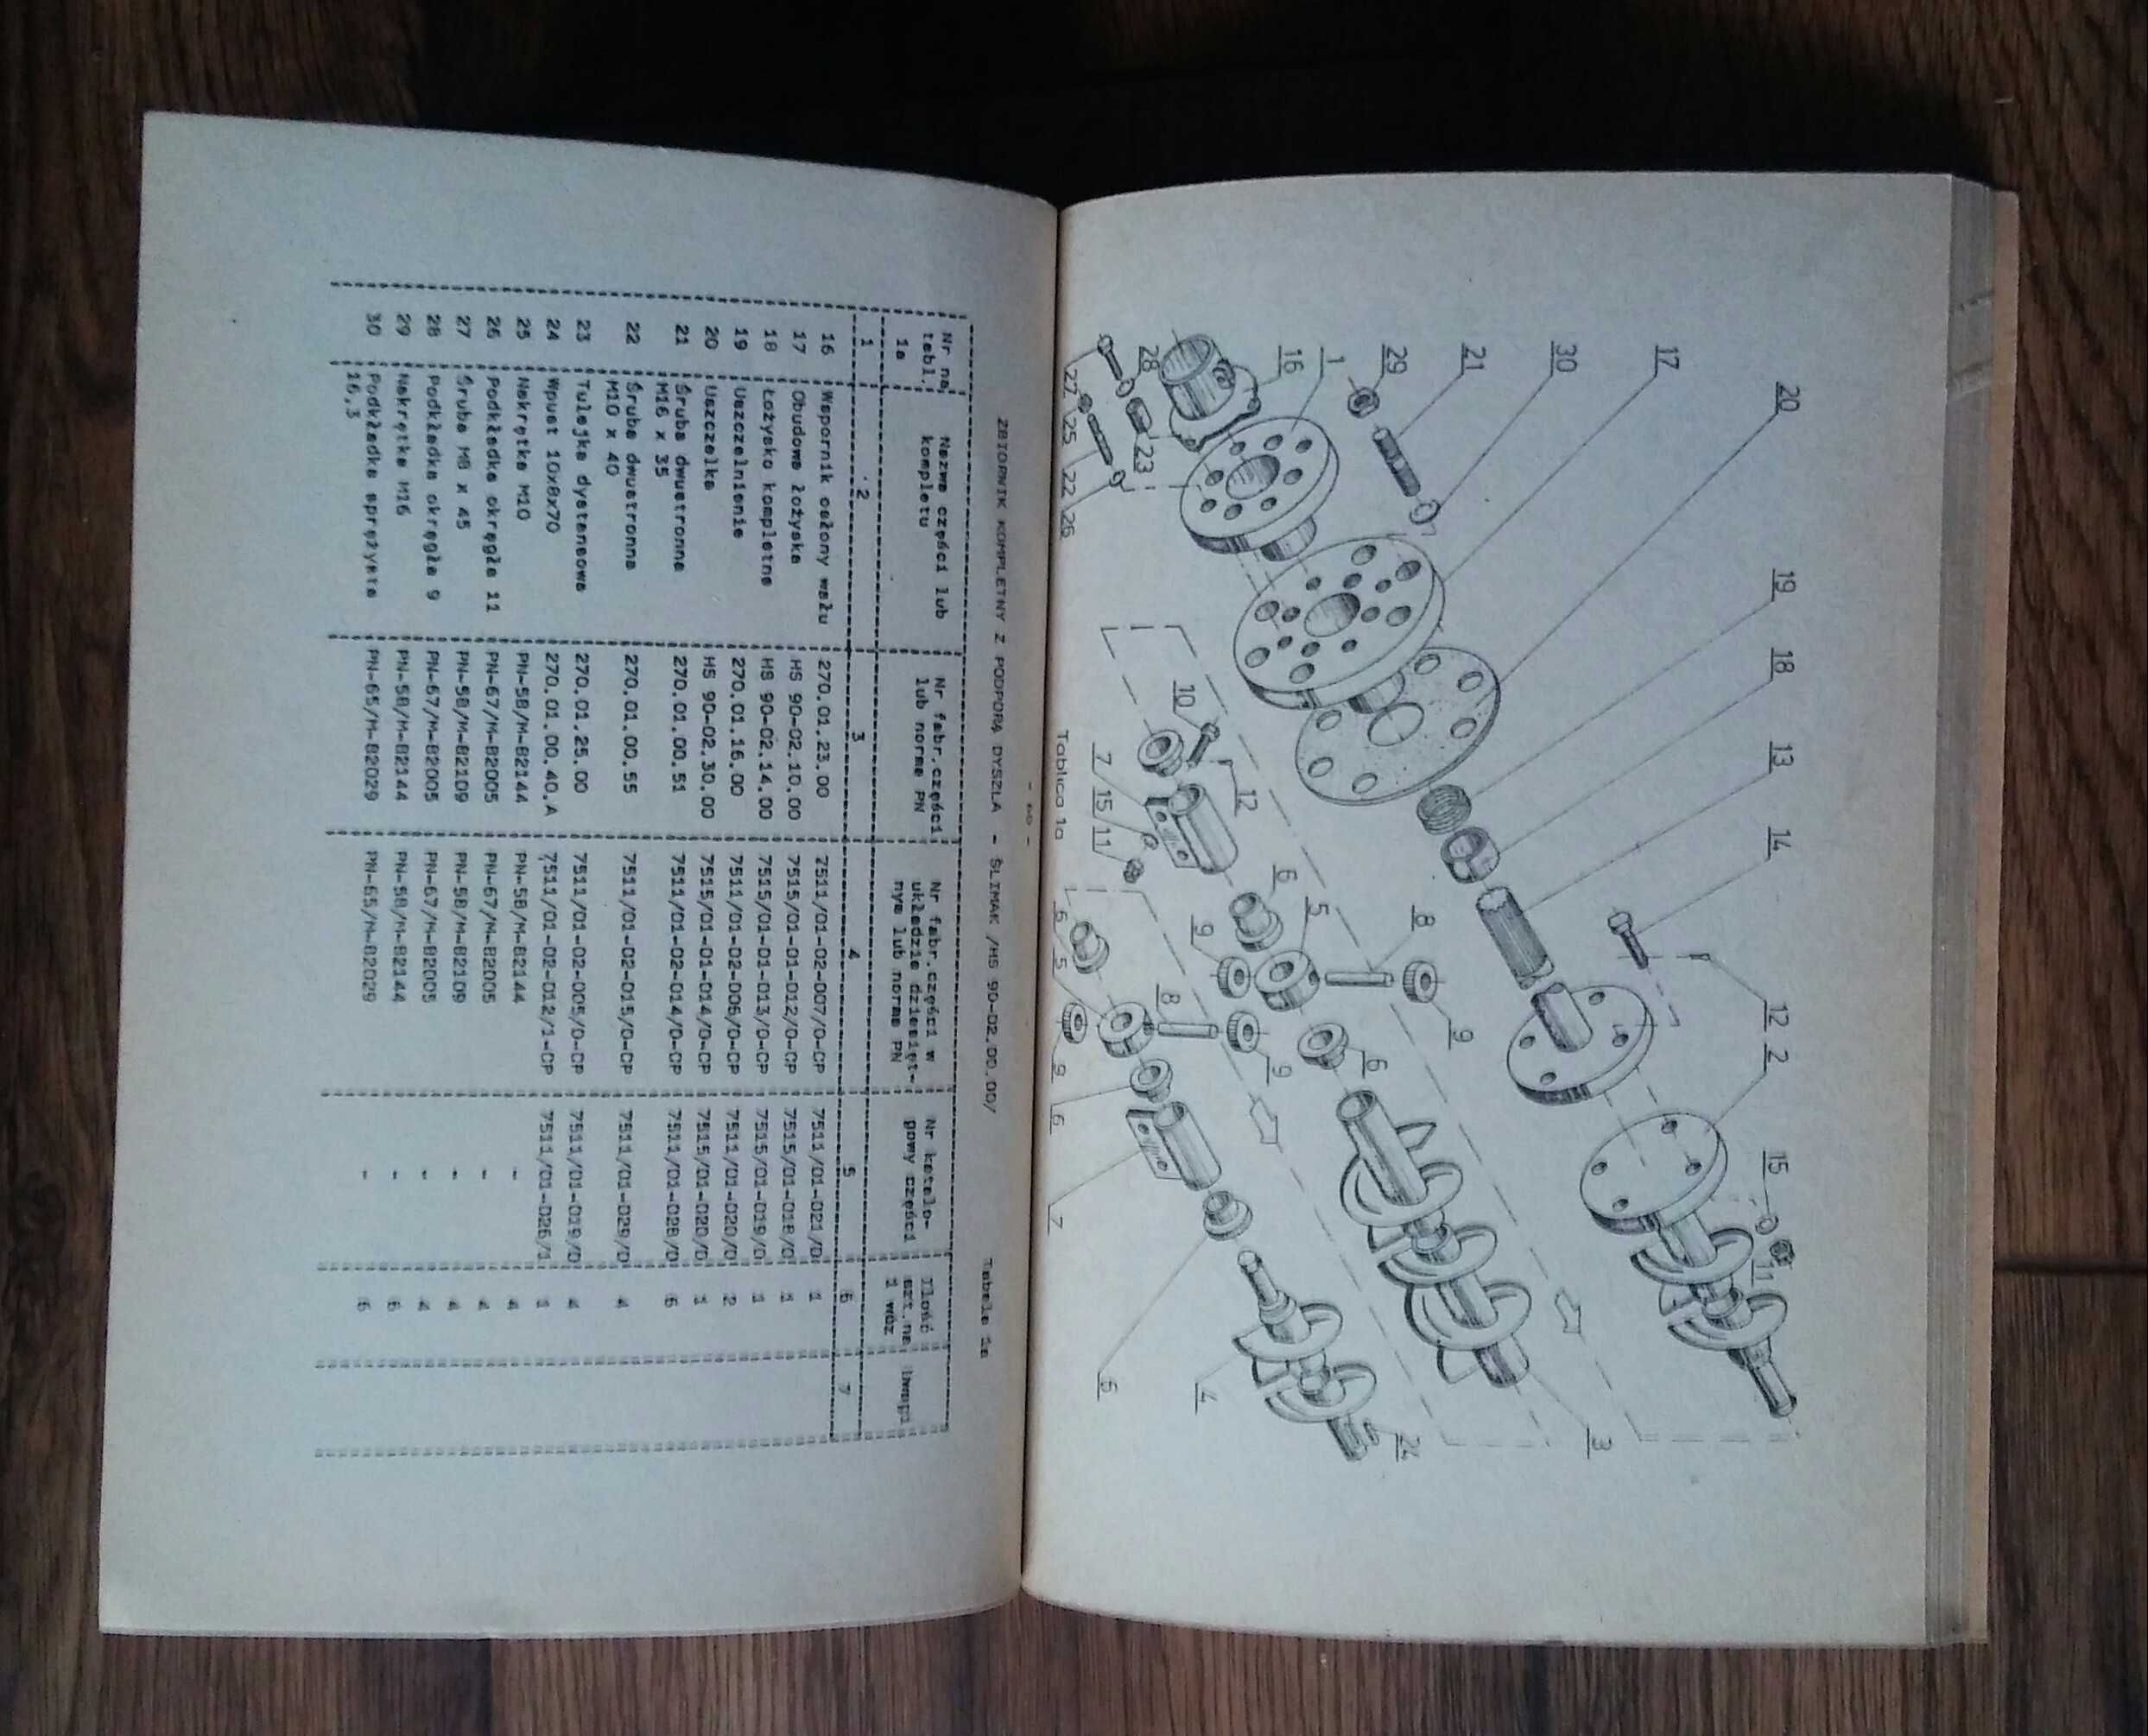 20
19
18
13
14
12 2
15
11
17
30
21
29
1
16
28
27 25 22 26
23
10
12
7 15 11
6
5
8
9
9
6
3
6 5
8
9
9 6
7
6
4
24
Tablica 1a
ZBIORNIK KOMPLETNY Z PODPORĄ DYSZLA - ŚLIMAK /HS 90-02.00.00/
Nr na Nazwa części lub Nr fabr.części Nr fabr.części w Nr katalo- Ilość Uwagi
tabl. kompletu lub norma PN układzie dziesięt- gowy części szt.na
1a nym lub norma PN 1 wóz
1 2 3 4 5 6 7
16 Wspornik osłony wału 270.01.23.00 7511/01-02-007/0-CP 7511/01-021/0 1
17 Obudowa łożyska HS 90-02.10.00 7515/01-01-012/0-CP 7515/01-018/0 1
18 Łożysko kompletne HS 90-02.14.00 7515/01-01-013/0-CP 7515/01-019/0 1
19 Uszczelnienie 270.01.16.00 7511/01-02-006/0-CP 7511/01-020/0 2
20 Uszczelka HS 90-02.30.00 7515/01-01-014/0-CP 7515/01-020/0 1
21 Śruba dwustronna 270.01.00.51 7511/01-02-014/0-CP 7511/01-028/0 6
M16 x 35
22 Śruba dwustronna 270.01.00.55 7511/01-02-015/0-CP 7511/01-029/0 4
M10 x 40
23 Tulejka dystansowa 270.01.25.00 7511/01-02-005/0-CP 7511/01-019/0 4
24 Wpust 10x8x70 270.01.00.40.A 7511/01-02-012/1-CP 7511/01-026/1 1
25 Nakrętka M10 PN-58/M-82144 PN-58/M-82144 - 4
26 Podkładka okrągła 11 PN-67/M-82005 PN-67/M-82005 - 4
27 Śruba M8 x 45 PN-58/M-82109 PN-58/M-82109 - 4
28 Podkładka okrągła 9 PN-67/M-82005 PN-67/M-82005 - 4
29 Nakrętka M16 PN-58/M-82144 PN-58/M-82144 - 6
30 Podkładka sprężysta PN-65/M-82029 PN-65/M-82029 - 6
16,3